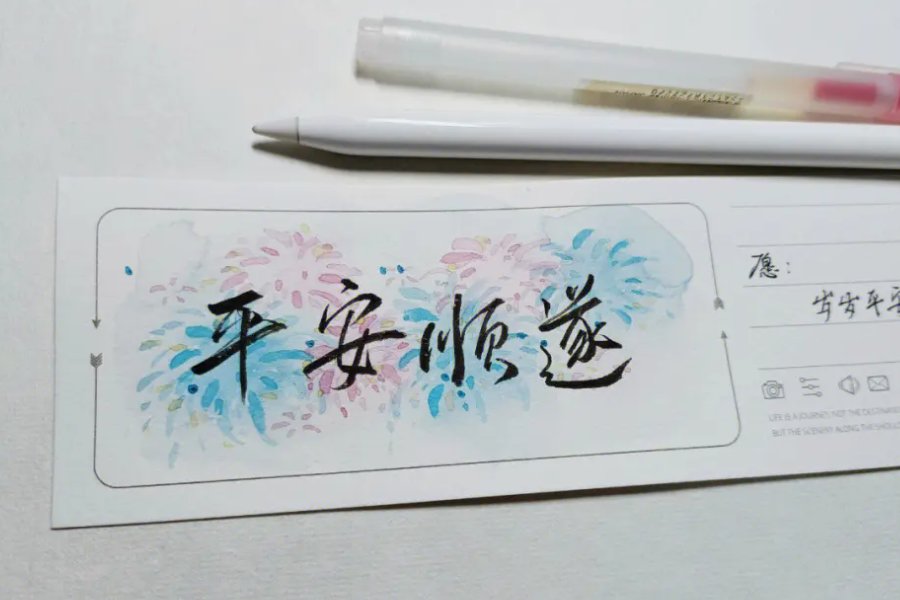 平安顺遂
愿：
岁岁平安
LIFE IS A JOURNEY, NOT THE DESTINAT
BUT THE SCENERY ALONG THE SHOUL